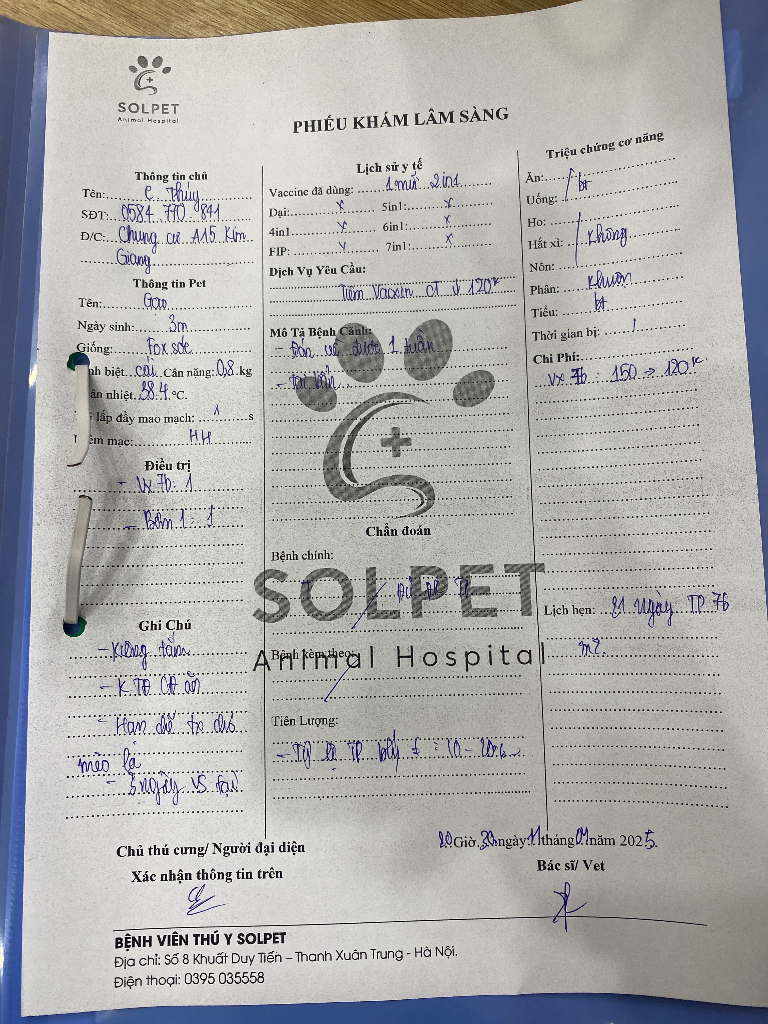 SOLPET
Animal Hospital
PHIẾU KHÁM LÂM SÀNG
Thông tin chủ
Tên: C Thúy
SĐT: 0584 770 841
Đ/C: Chung cư A15 Kim
Giang
Thông tin Pet
Tên: Gạo
Ngày sinh: 3m
Giống: Fox sóc
biệt: cái Cân nặng: 0,8 kg
nhiệt: 38.4 °C
lấp đầy mao mạch: 1 s
mạc: HH
Điều trị
- Vx 7b: 1
- 1: 1
Ghi Chú
- Kiêng tắm
- K TĐ ăn
- Hạn chế tx chó
mèo lạ
- 3 ngày VS tai
Lịch sử y tế
Vaccine đã dùng: 1 mũi 2in1
Dại: x 5in1: x
4in1: x 6in1: x
FIP: x 7in1: x
Dịch Vụ Yêu Cầu:
Tiêm Vacxin 120k
Mô Tả Bệnh Cảnh:
- Đón về được 1 tuần
- tai bẩn
Chẩn đoán
Bệnh chính:
SOLPET
Animal Hospital
Bệnh kèm theo:
Tiên Lượng:
Triệu chứng cơ năng
Ăn: bt
Uống:
Ho:
Hắt xì: Không
Nôn:
Phân: Khuôn
Tiểu: bt
Thời gian bị: /
Chi Phí:
Vx 7b: 150 → 120k
Lịch hẹn: 21 ngày TP 7b
m2.
20 Giờ 30 ngày 11 tháng 04 năm 2025.
Chủ thú cưng/ Người đại diện
Xác nhận thông tin trên
Bác sĩ/ Vet
BỆNH VIỆN THÚ Y SOLPET
Địa chỉ: Số 8 Khuất Duy Tiến – Thanh Xuân Trung - Hà Nội.
Điện thoại: 0395 035558